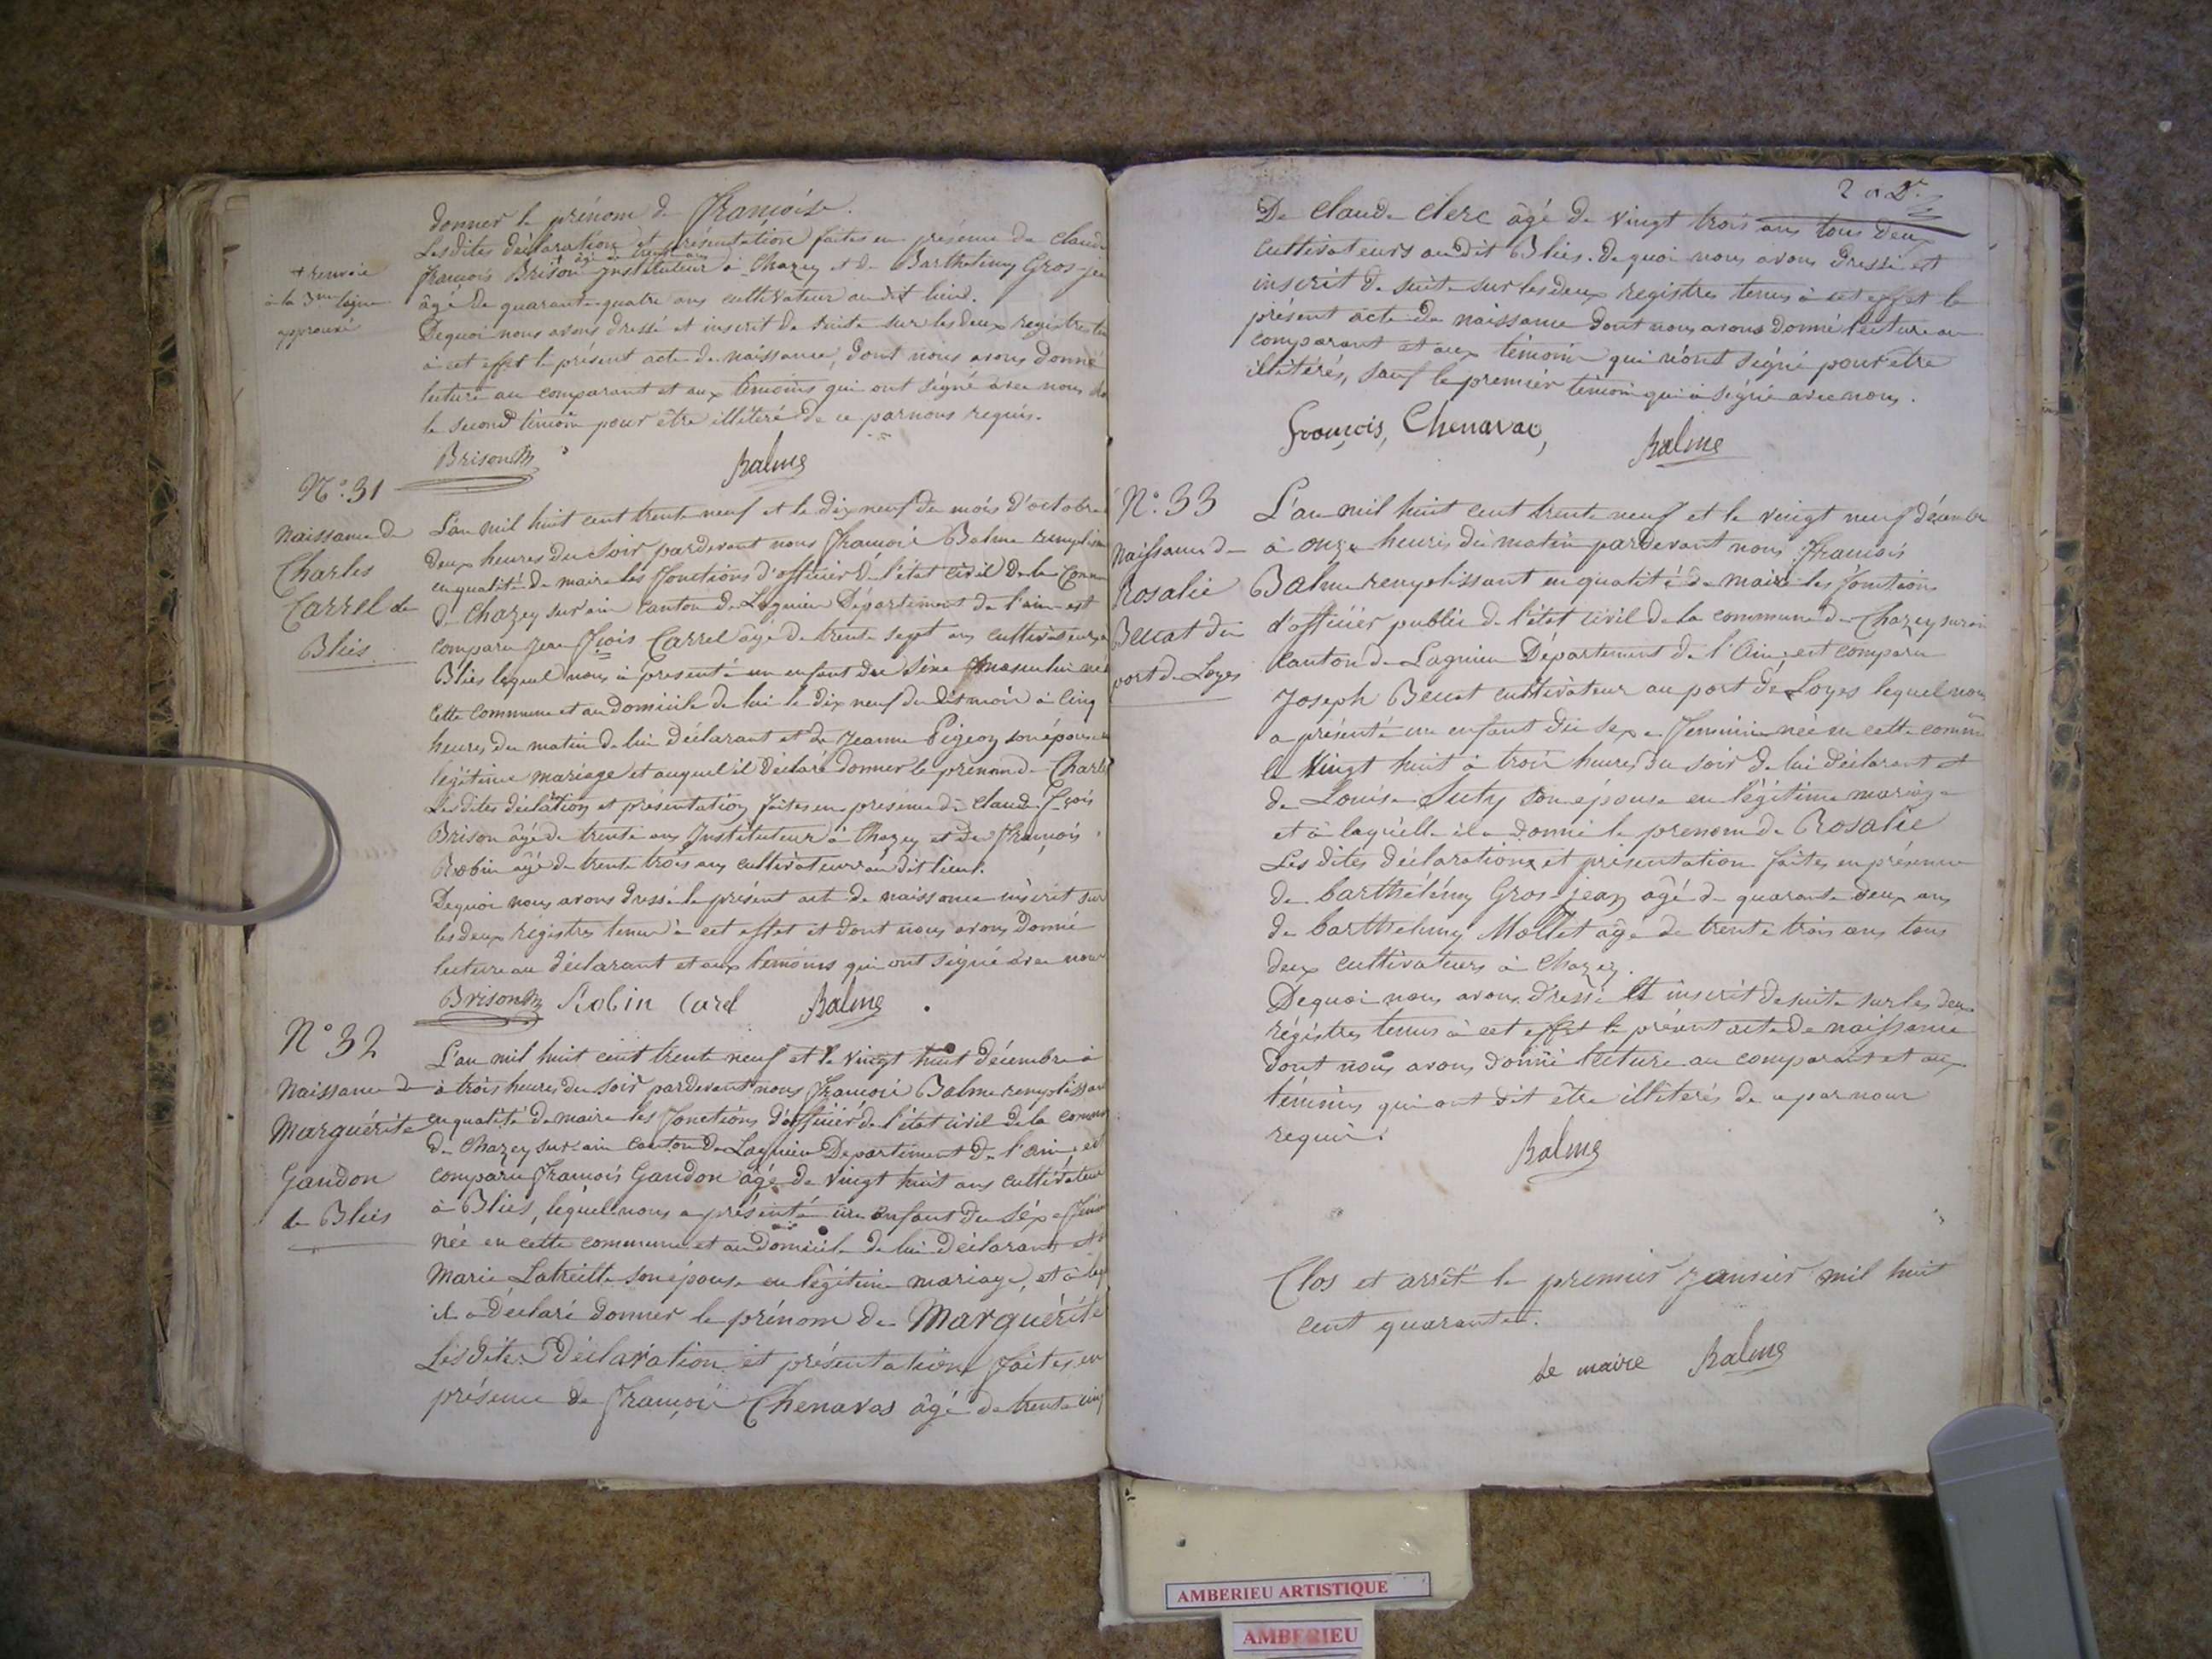 donner le prénom de Françoise.
Lesdites déclaration et présentation faites en présence de Claude
+ âgé de trente ans
François Brison Instituteur à Chazey et de Barthelemy Gros-jean
+ renvoie
à la 3me ligne
approuvé
âgé de quarante-quatre ans cultivateur audit lieu.
Dequoi nous avons dressé et inscrit de suite sur les deux registres
à cet effet le présent acte de naissance, dont nous avons donné
lecture au comparant et aux témoins qui ont signé avec nous
le second témoin pour être illitéré de ce par nous requis.
Brison Balme
N°. 31
Naissance de
Charles
Carrel de
Blies
L'an mil huit cent trente neuf et le dix neuf du mois d'octobre
deux heures du soir pardevant nous François Balme remplissant
en qualité de maire les fonctions d'officier de l'état civil de la Commune
de Chazey sur ain canton de Lagnieu Département de l'ain est
comparu Jean Fçois Carrel âgé de trente sept ans cultivateur à
Blies lequel nous à présenté un enfant du sèxe masculin né
cette commune et au domicile de lui le dix neuf du dit mois à cinq
heures du matin de lui déclarant et de Jeanne Pigeon son épouse en
légitime mariage et auquel il déclare donner le prénom de Charles
Lesdites déclation et présentation faites en présence de Claude Fçois
Brison âgé de trente ans Instituteur à Chazey et de François
Robin âgé de trente trois ans cultivateur au dit lieu.
Dequoi nous avons dressé le présent acte de naissance inscrit sur
les deux régistres tenus à cet effet et dont nous avons donné
lecture au déclarant et aux témoins qui ont signé avec nous
Brison Robin Carel Balme
N° 32
Naissance de
Marguérite
Gandon
de Blies
L'an mil huit cent trente neuf et le vingt huit décembre à
à trois heures du soir pardevant nous François Balme remplissant
en qualité de maire les fonctions d'officier de l'état civil de la commune
de Chazey sur ain canton de Lagnieu Département de l'ain, est
comparu François Gandon âgé de vingt huit ans cultivateur
à Blies, lequel nous a présenté un enfant du sèxe fémin
née en cette commune et au domicile de lui déclarant et
Marie Latreille son épouse en légitime mariage, et à laq
il a déclaré donner le prénom de Marguérite
Lesdites déclaration et présentation faites en
présence de François Chenavas âgé de trente cinq
De Claude Clerc âgé de vingt trois ans tous deux
cultivateurs audit Blies. De quoi nous avons dressé et
inscrit de suite sur les deux registres tenus à cet effet le
présent acte de naissance dont nous avons donné lecture au
comparant et aux témoins qui n'ont signé pour être
illitérés, sauf le premier témoin qui a signé avec nous.
François, Chenavas, Balme
N°. 33
Naissance de
Rosalie
Beuat du
port de Loyes
L'an mil huit cent trente neuf et le vingt neuf décembre
à onze heures du matin pardevant nous François
Balme remplissant en qualité de maire les fonctions
d'officier public de l'état civil de la commune de Chazey sur ain
canton de Lagnieu Département de l'Ain; est comparu
Joseph Beuat cultivateur au port de Loyes lequel nous
a présenté un enfant du sexe féminin née en cette comm
le Vingt huit à trois heures du soir de lui déclarant et
de Louise Juty son épouse en légitime mariage
et à laquelle il a donné le prenom de Rosalie
Lesdites déclarations et présentation faites en présence
de barthélémy Gros-jean âgé de quarante deux ans
de barthelemy Mollet âgé de trente trois ans tous
deux cultivateurs à Chazey.
Dequoi nous avons dressé et inscrit de suite sur les deux
régistres tenus à cet effet le présent acte de naissance
dont nous avons donné lecture au comparant et aux
témins qui ont dit être illiterés de ce par nous
requis.
Balme
Clos et arrêté le premier Janvier mil huit
cent quarante.
Le maire Balme
AMBERIEU ARTISTIQUE
AMBERIEU